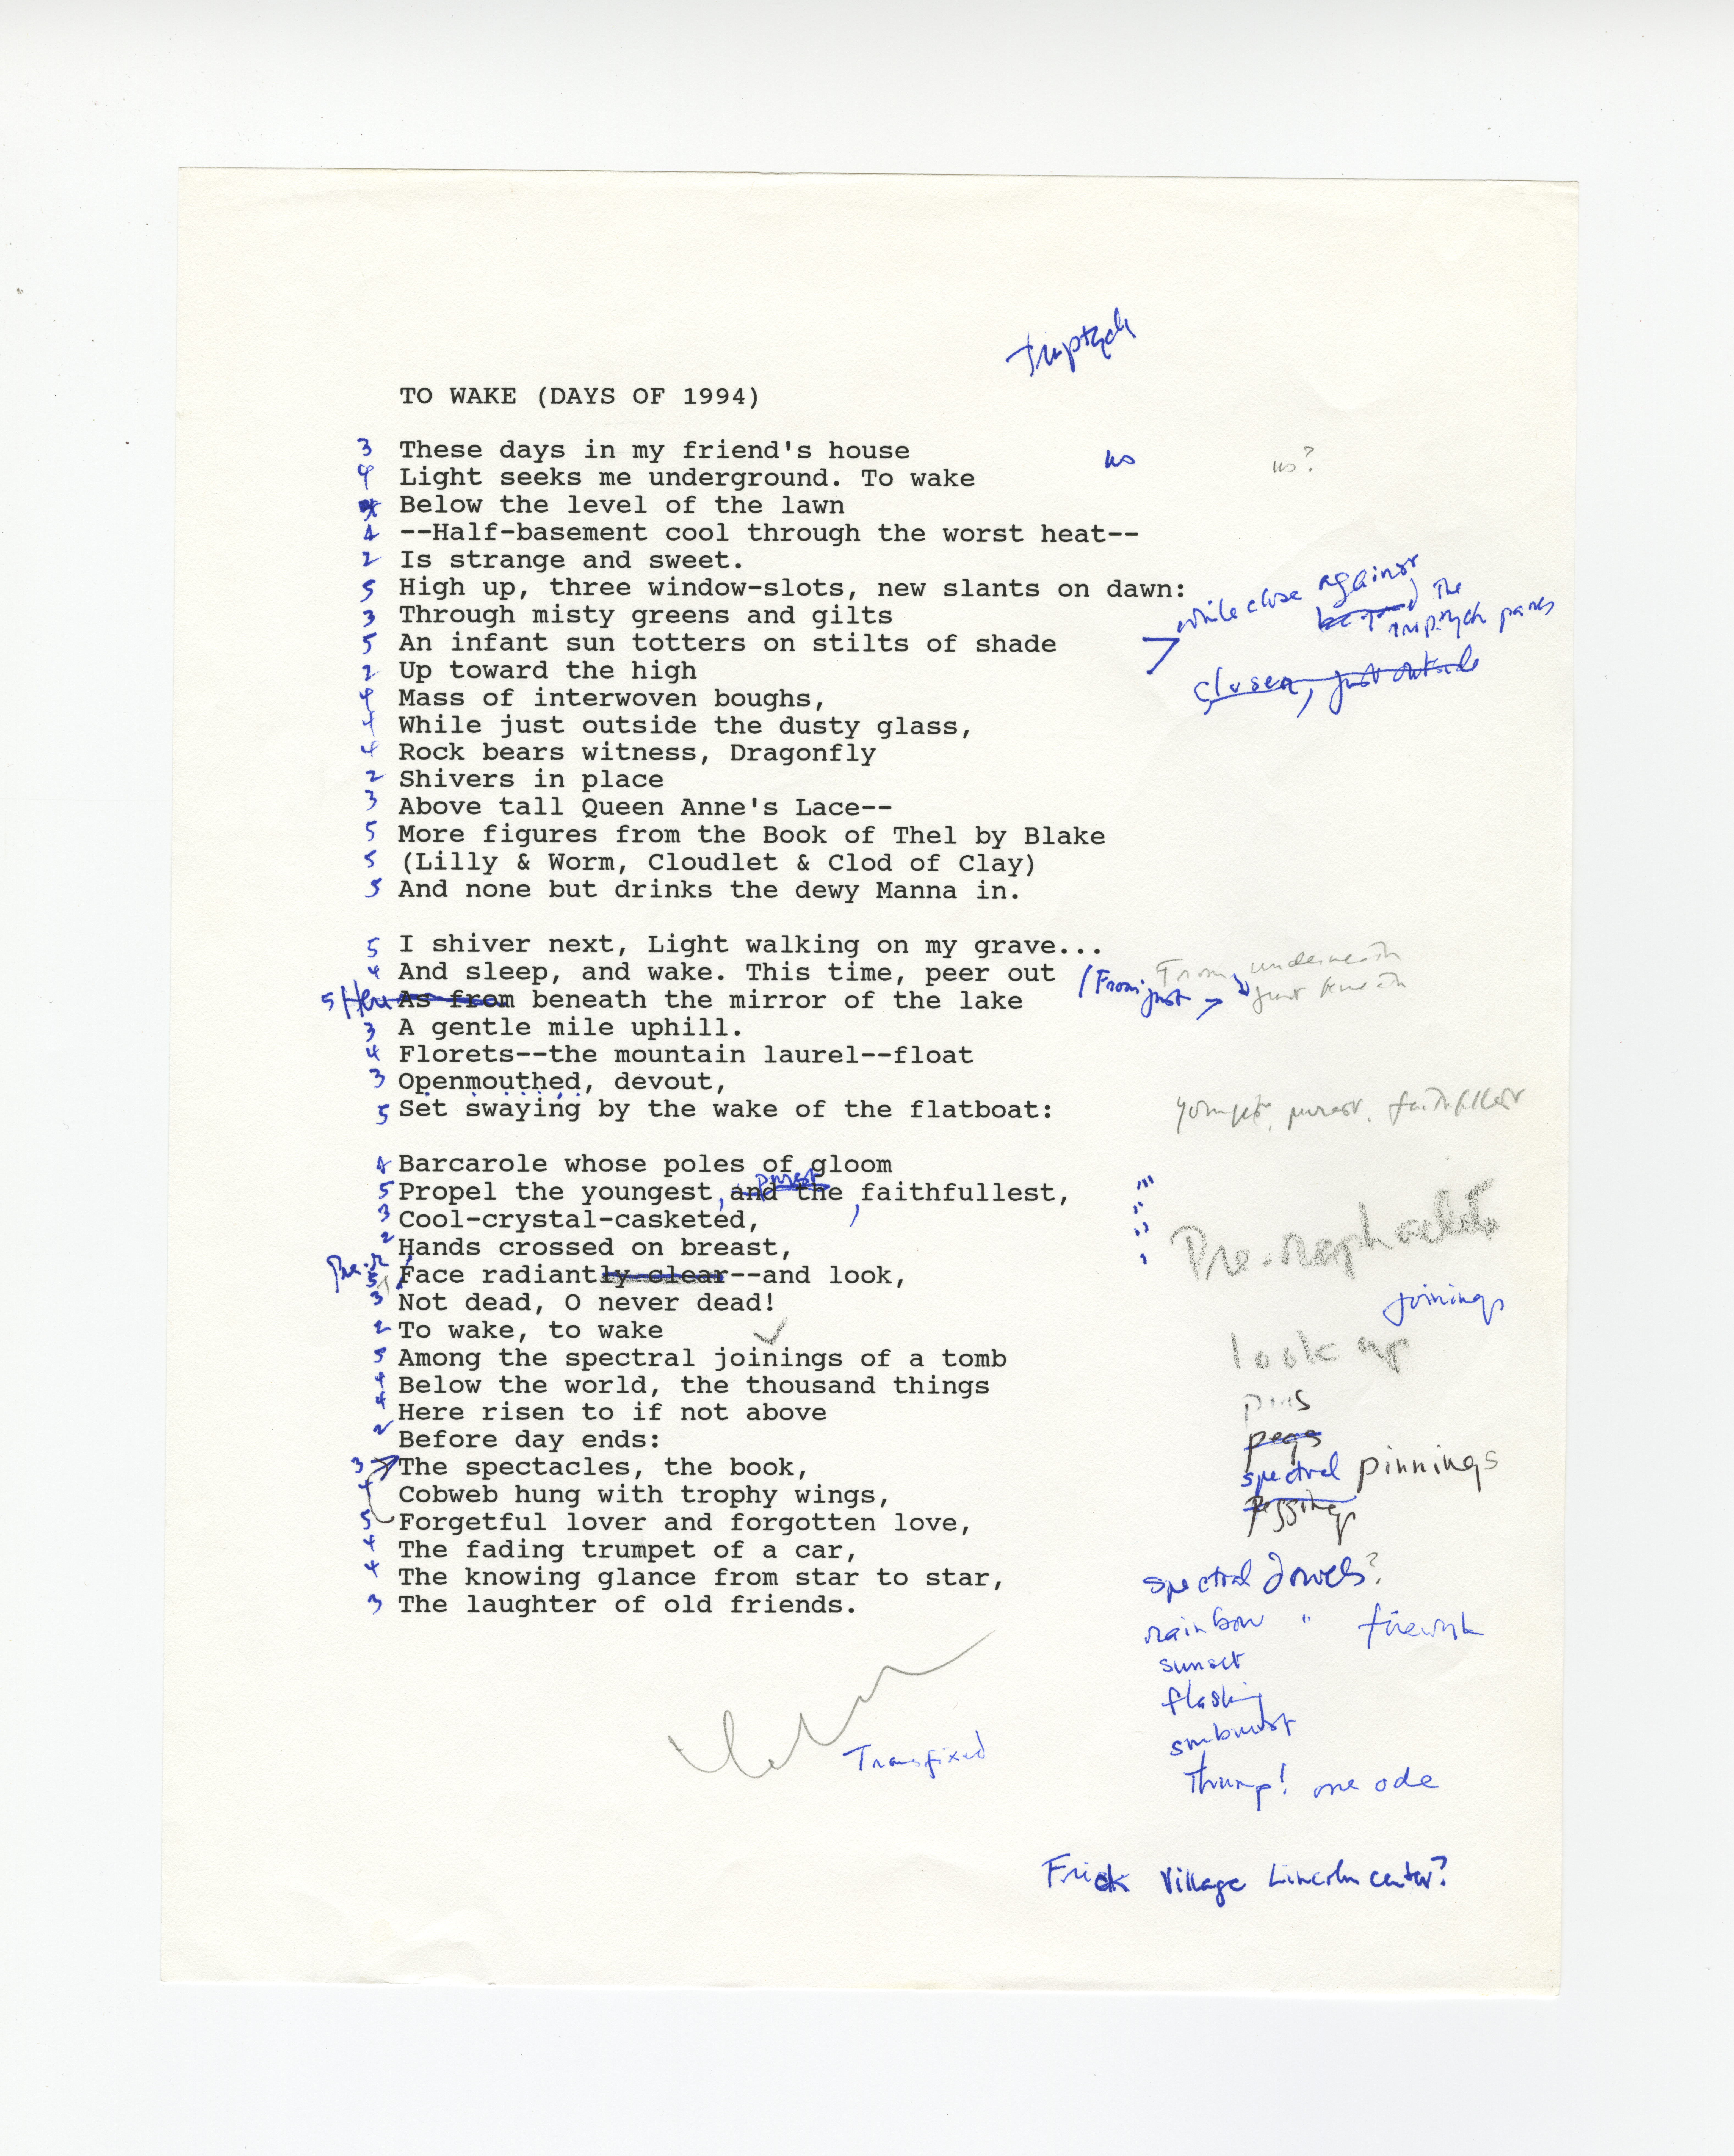 Triptych
TO WAKE (DAYS OF 1994)
3 These days in my friend's house
us us?
4 Light seeks me underground. To wake
Below the level of the lawn
4 --Half-basement cool through the worst heat--
2 Is strange and sweet.
5 High up, three window-slots, new slants on dawn:
while close against the
triptych panes
3 Through misty greens and gilts
5 An infant sun totters on stilts of shade
closer, just outside
2 Up toward the high
4 Mass of interwoven boughs,
4 While just outside the dusty glass,
4 Rock bears witness, Dragonfly
2 Shivers in place
3 Above tall Queen Anne's Lace--
5 More figures from the Book of Thel by Blake
5 (Lilly & Worm, Cloudlet & Clod of Clay)
5 And none but drinks the dewy Manna in.
5 I shiver next, Light walking on my grave...
4 And sleep, and wake. This time, peer out
(From just
From underneath
just beneath
5 As from beneath the mirror of the lake
3 A gentle mile uphill.
4 Florets--the mountain laurel--float
3 Openmouthed, devout,
5 Set swaying by the wake of the flatboat:
youngest, purest, faithfullest
4 Barcarole whose poles of gloom
purest
5 Propel the youngest, and the, faithfullest,
3 Cool-crystal-casketed,
Pre-raphaelite
2 Hands crossed on breast,
Pre-r
5 Face radiantly clear--and look,
joinings
3 Not dead, O never dead!
2 To wake, to wake
look up
5 Among the spectral joinings of a tomb
4 Below the world, the thousand things
pins
4 Here risen to if not above
pegs
2 Before day ends:
spectral pinnings
3 The spectacles, the book,
4 Cobweb hung with trophy wings,
pegging
5 Forgetful lover and forgotten love,
4 The fading trumpet of a car,
4 The knowing glance from star to star,
spectral dowels?
3 The laughter of old friends.
rainbow " firework
sunset
flashing
sunburst
Transfixed
Thump! one ode
Frick Village Lincoln center?